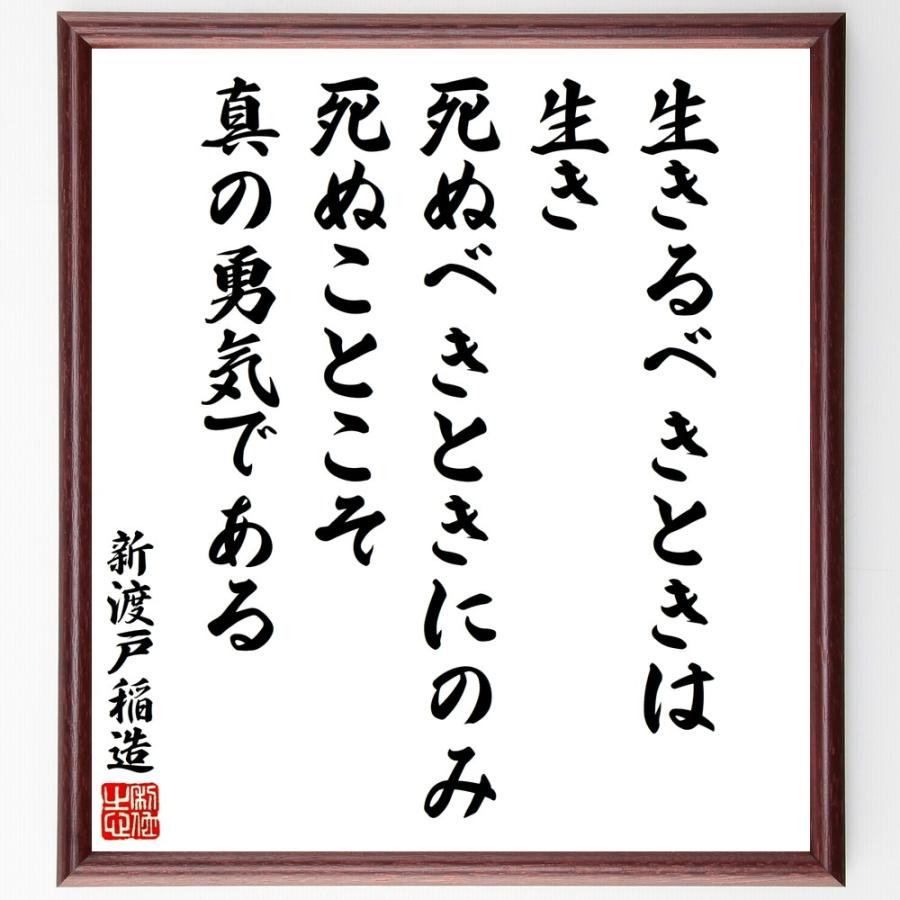 生きるべきときは
生き
死ぬべきときにのみ
死ぬことこそ
真の勇気である
新渡戸稲造